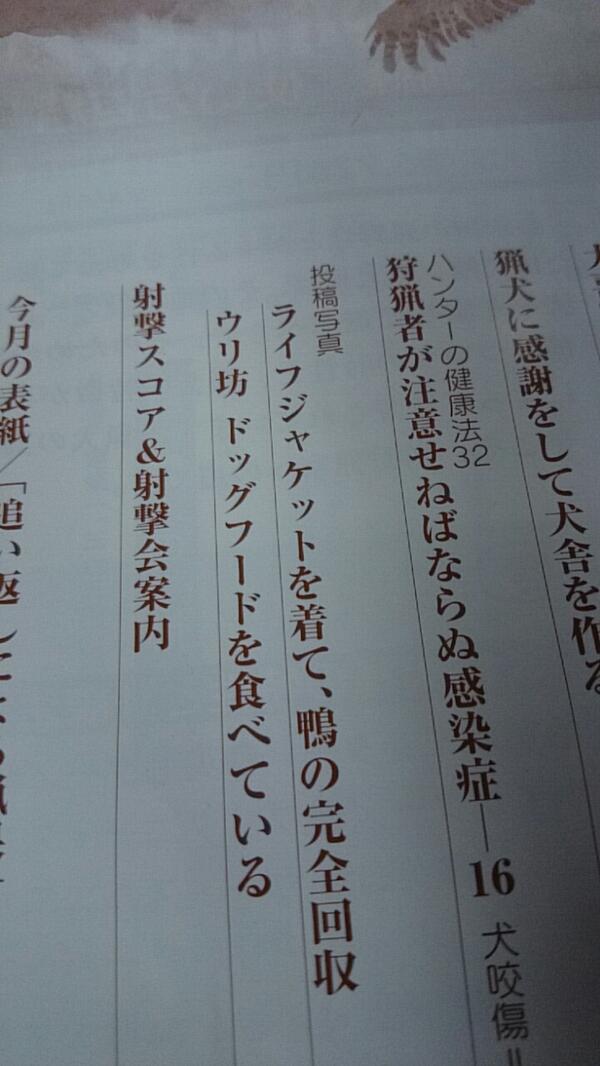 猟犬に感謝をして犬舎を作る
ハンターの健康法32
狩猟者が注意せねばならぬ感染症―16 犬咬傷＝
投稿写真
ライフジャケットを着て、鴨の完全回収
ウリ坊 ドッグフードを食べている
射撃スコア&射撃会案内
今月の表紙／「追い返し